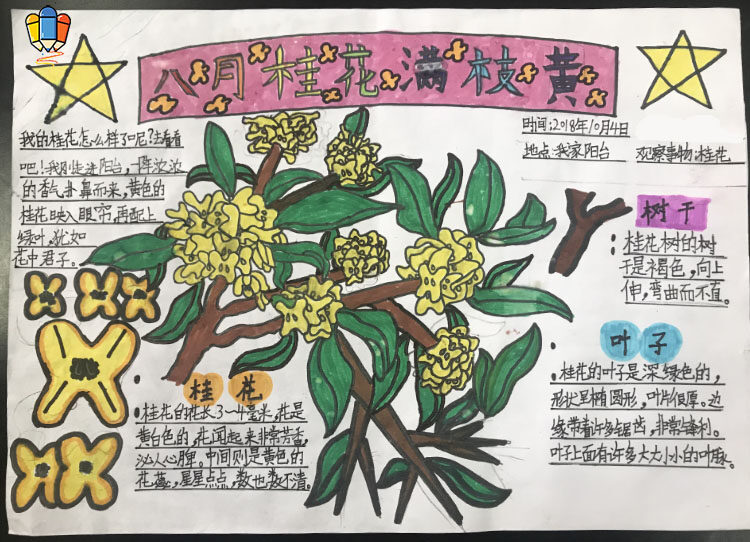 八月桂花满枝黄
时间:2018年10月4日
地点:我家阳台 观察事物:桂花
我的桂花怎么样了呢?去看看
吧!我刚走进阳台,一阵浓浓
的香气扑鼻而来,黄色的
桂花映入眼帘,再配上
绿叶,犹如
花中君子。
树干
桂花树的树
干是褐色,向上
伸,弯曲而不直。
叶子
桂花的叶子是深绿色的,
形状呈椭圆形,叶片很厚。边
缘带着许多锯齿,非常锋利。
叶子上面有许多大大小小的叶脉。
桂花
桂花的花长3~4毫米,花是
黄白色的,花闻起来非常芳香,
沁人心脾。中间则是黄色的
花蕊,星星点点,数也数不清。